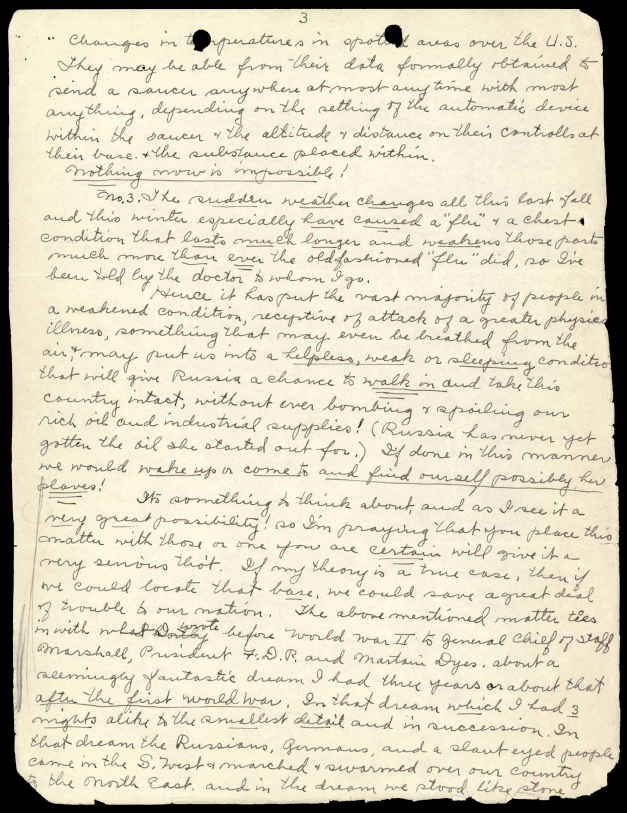 3
changes in temperatures in spotted areas over the U.S.
They may be able from their data formally obtained to
send a saucer anywhere at most anytime with most
anything, depending on the setting of the automatic device
within the saucer & the altitude & distance on their controlls at
their base. & the substance placed within.
Nothing now is impossible!
No.3. The sudden weather changes all this last fall
and this winter especially have caused a "flu" & a chest
condition that lasts much longer and weakens those parts
much more than ever the oldfashioned "flu" did, so I've
been told by the doctor to whom I go.
Hence it has put the vast majority of people in
a weakened condition, receptive of attack of a greater physica
illness, something that may even be breathed from the
air, & may put us into a helpless, weak or sleeping conditio
that will give Russia a chance to walk in and take this
country intact, without ever bombing & spoiling our
rich oil and industrial supplies! (Russia has never yet
gotten the oil she started out for.) If done in this manner
we would wake up or come to and find ourself possibly her
slaves!
Its something to think about, and as I see it a
very great possibility! so I'm praying that you place this
matter with those or one you are certain will give it a
very serious tho't. If my theory is a true case, then if
we could locate that base, we could save a great deal
of trouble to our nation. The above mentioned matter ties
in with what I wrote before World War II to General Chief of Staff
Marshall, President F.D.R. and Martain Dyes. about a
seemingly fantastic dream I had three years or about that
after the first world war. In that dream which I had 3
nights alike to the smallest detail and in succession. In
that dream the Russians, Germans, and a slant eyed people
came in the S. West & marched & swarmed over our country
to the North East. and in the dream we stood like stone